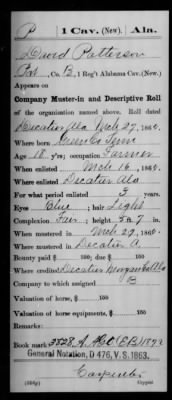 P 1 Cav. (New). Ala.
David Patterson
Pvt, Co. B, 1 Reg't Alabama Cav. (New.)
Appears on
Company Muster-in and Descriptive Roll
of the organization named above. Roll dated
Decatur Ala Mch 29, 186
Where born Green Co Tenn
Age 18 y'rs; occupation Farmer
When enlisted Mch 16, 186
Where enlisted Decatur Ala
For what period enlisted 3 years.
Eyes Blue; hair Light
Complexion Fair; height 5 ft. 7 in.
When mustered in Mch 29, 186
Where mustered in Decatur A.
Bounty paid $ 100; due $ 100
Where credited Decatur Morgan Co Ala
Company to which assigned B
Valuation of horse, $ 100
Valuation of horse equipments, $ 100
Remarks:
Book mark: 3828 A. (EB) 1872
General Notation, D 476, V.S. 1863.
Carpenter
Copyist.